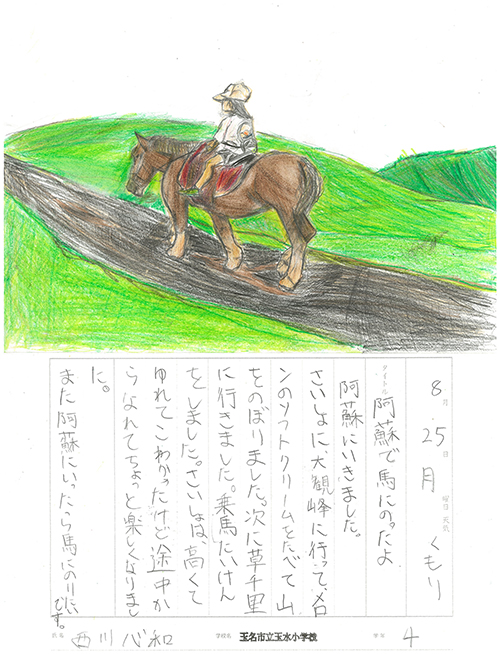 8月25日月曜日天気くもり
タイトル 阿蘇で馬にのったよ
阿蘇にいきました。
さいしょに、大観峰に行って、メロ
ンのソフトクリームをたべて山
をのぼりました。次に草千里
に行きました。乗馬たいけん
をしました。さいしょは、高くて
ゆれてこわかったけど途中か
らなれてちょっと楽しくなりまし
た。
また阿蘇にいったら馬にのりたい
です。
氏名 西川心和 学校名 玉名市立玉水小学校 学年 4